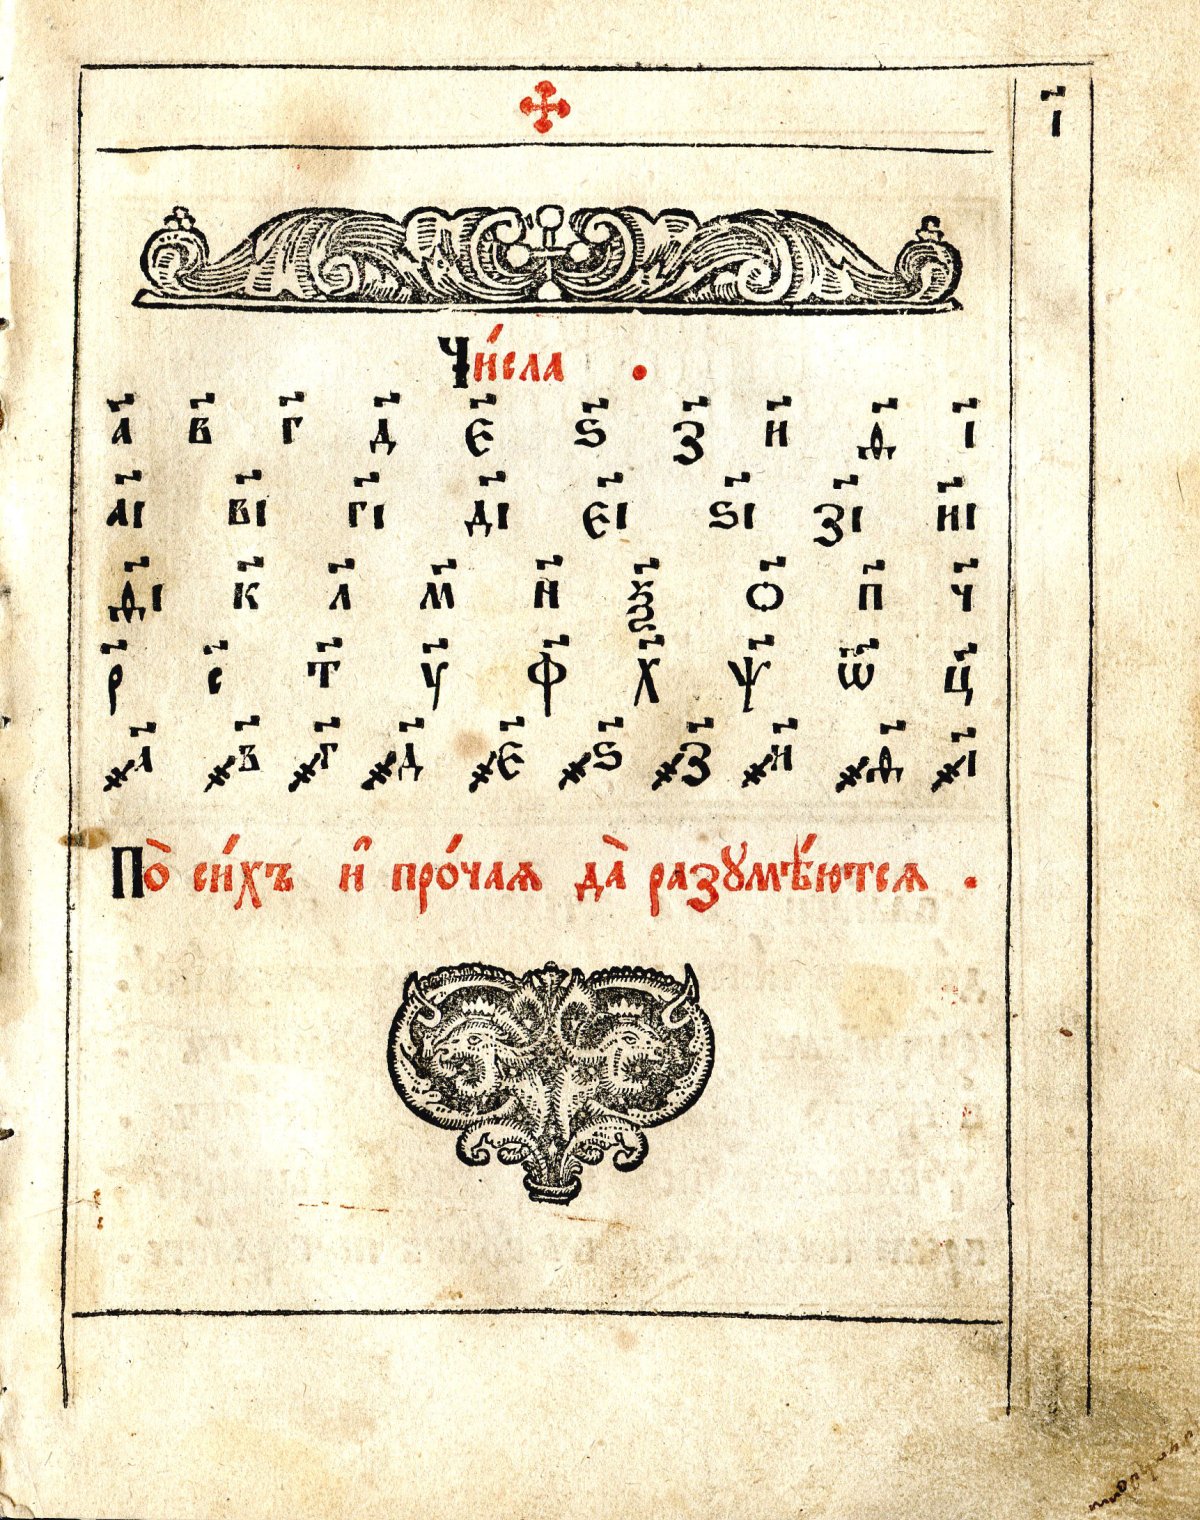 і҃
Чи́сла .
а҃ в҃ г҃ д҃ є҃ ѕ҃ з҃ и҃ ѳ҃ і҃
а҃і в҃і г҃і д҃і є҃і ѕ҃і з҃і и҃і
ѳ҃і к҃ л҃ м҃ н҃ ѯ҃ о҃ п҃ ч҃
р҃ с҃ т҃ у҃ ф҃ х҃ ѱ҃ ѿ҃ ц҃
҂а҃ ҂в҃ ҂г҃ ҂д҃ ҂є҃ ҂ѕ҃ ҂з҃ ҂и҃ ҂ѳ҃ ҂і҃
По̀ си́хъ и҆ про́чаѧ да̀ разꙋмѣ́ютсѧ .